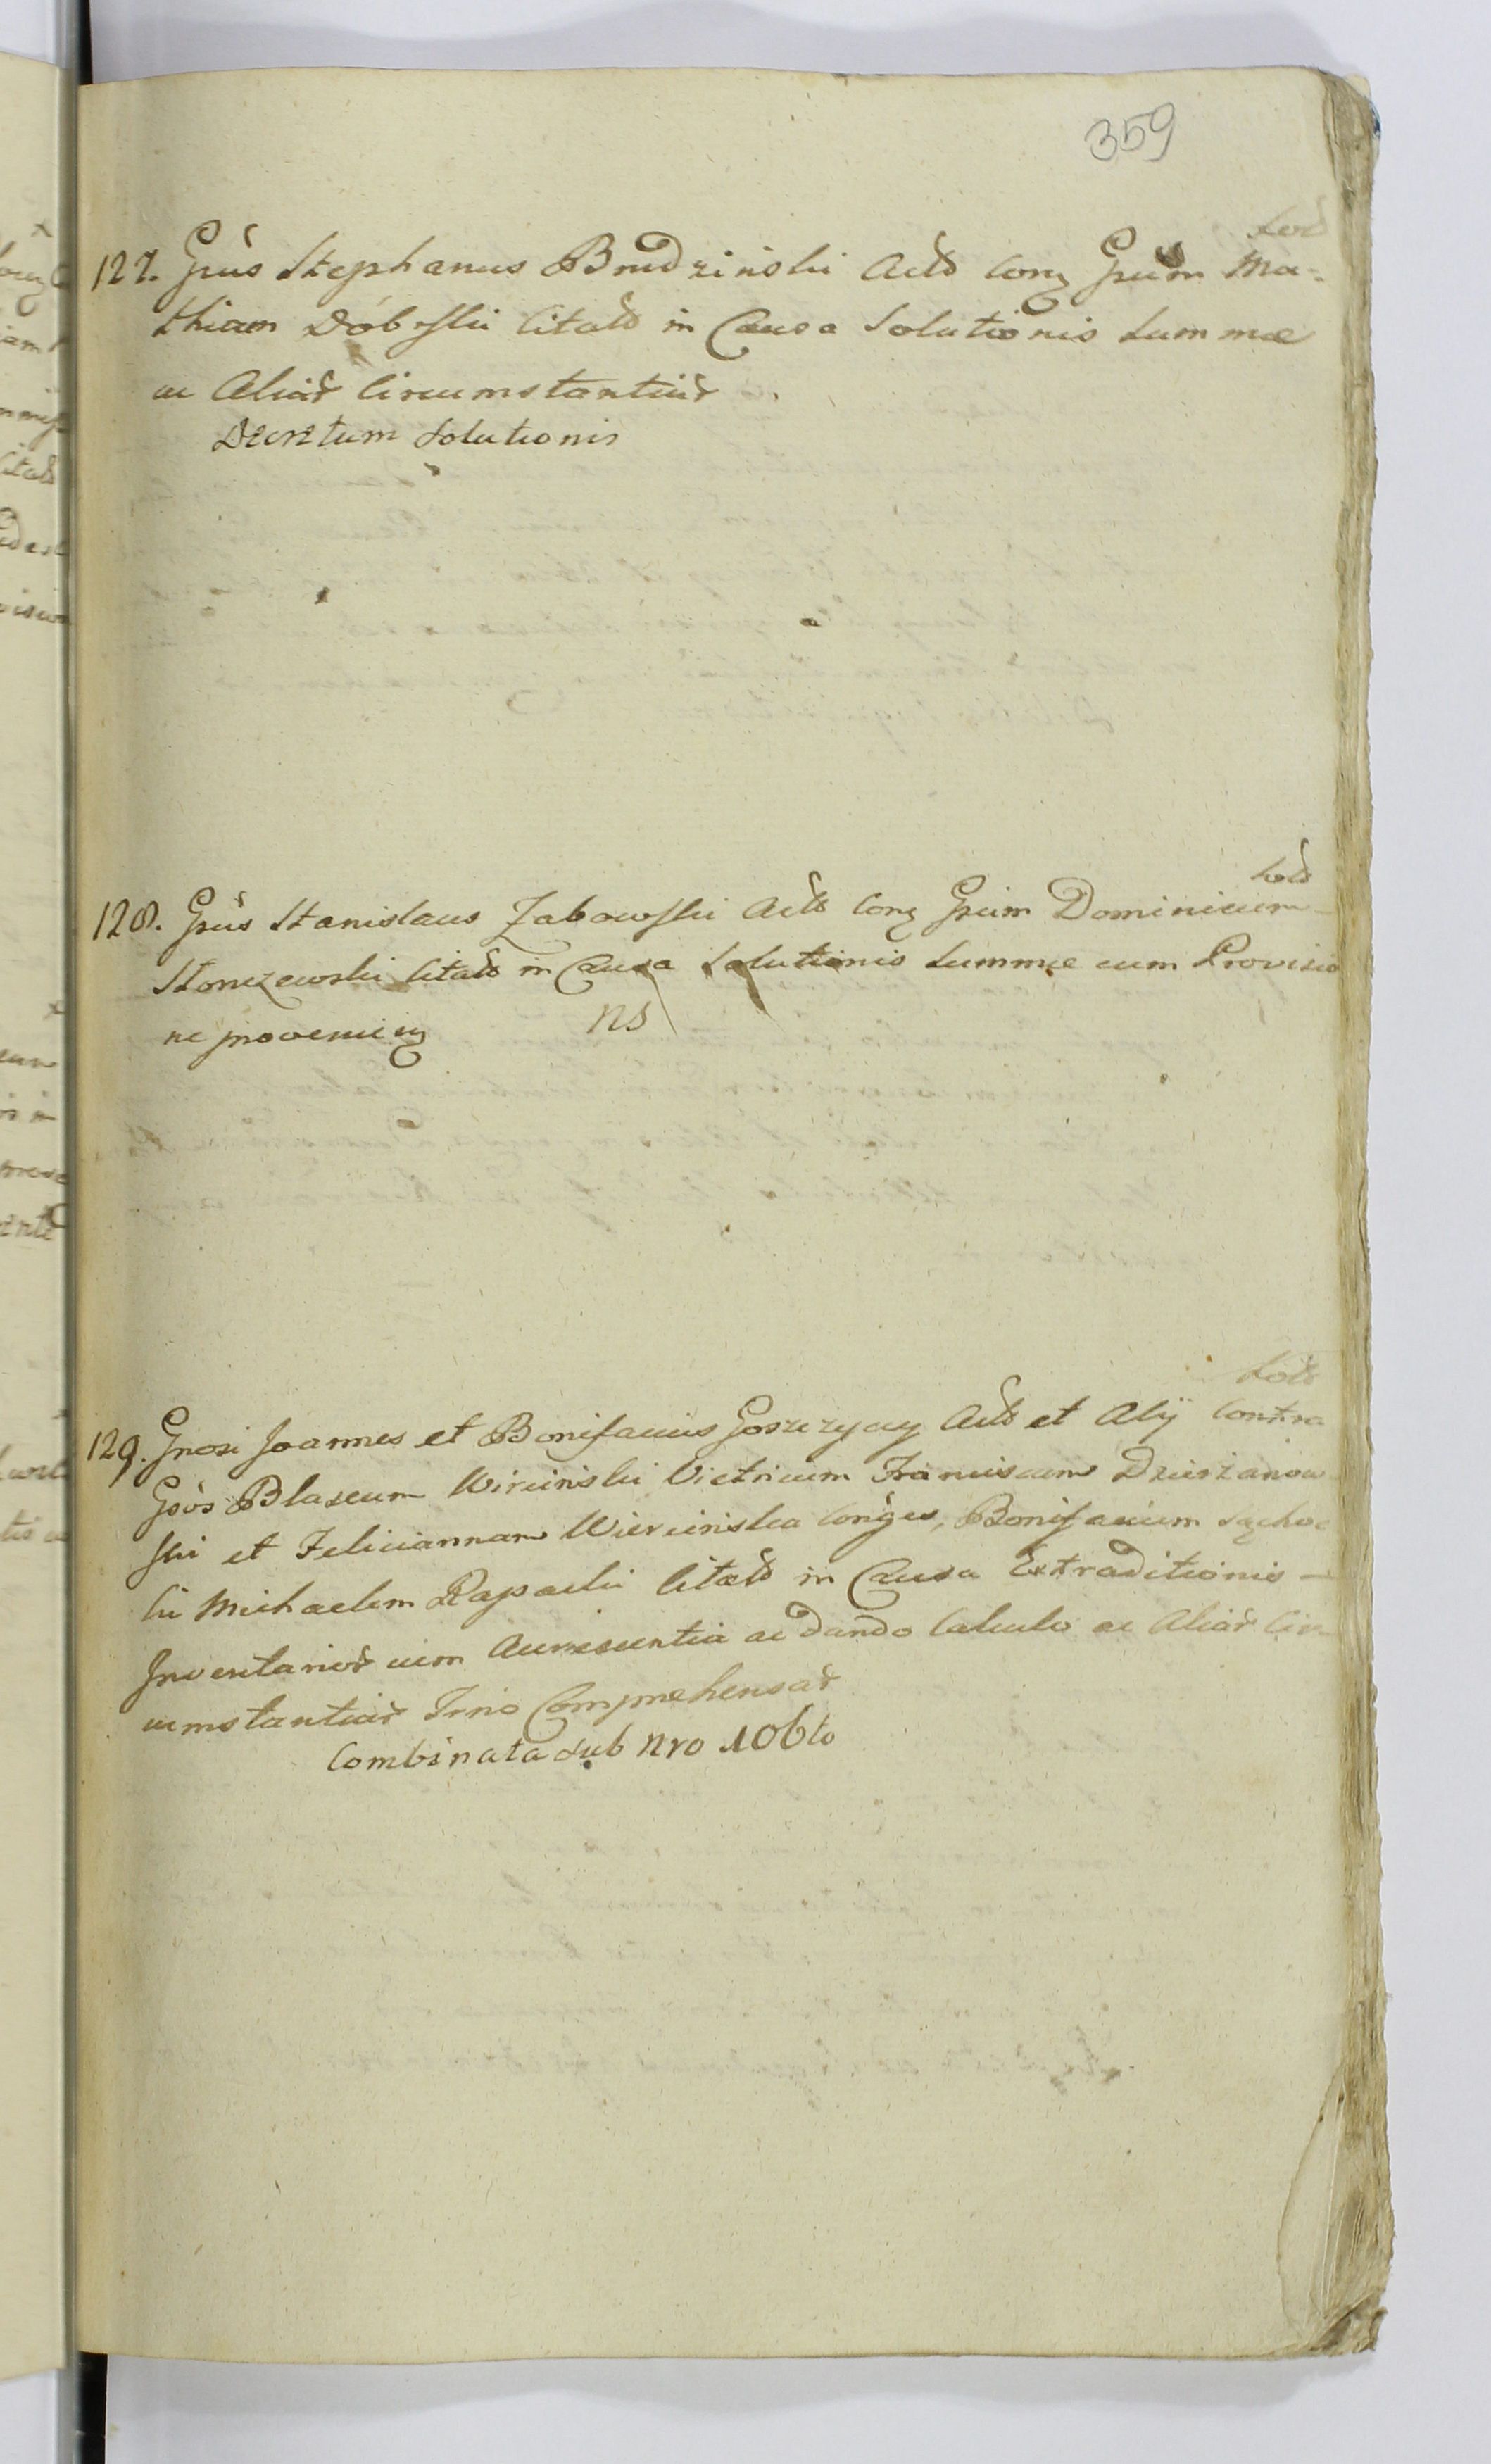 359
127. Gsus Stephanus Brudzinski Actb Conq Gsum Ma-
thiam Dobrski Citatb in Causa Solutionis Summae
ac Aliar Circumstantiar
Decretum Solutionis
128. Gsus Stanislaus Zabowski Actb Conq Gsum Dominicum
Stonczewski Citatb in Causa Solutionis Summae cum Provisio
ne provenien
ns
129. Gnosi Joannes et Bonifacius Goszczyccy Actb et Alij Contra
Gsos Blaseum Wircinski Victricum Franciscum Dzierzanow
ski et Feliciannam Wiercinska Conges, Bonifacium Sącho
cki Michaelem Rapacki Citatb in Causa Extraditionis
Inventarior cum Accrescentia ac dando Calculo ac Aliar Cir
cumstantiar Trmo Comprehensar
Combinata sub Nro 106to